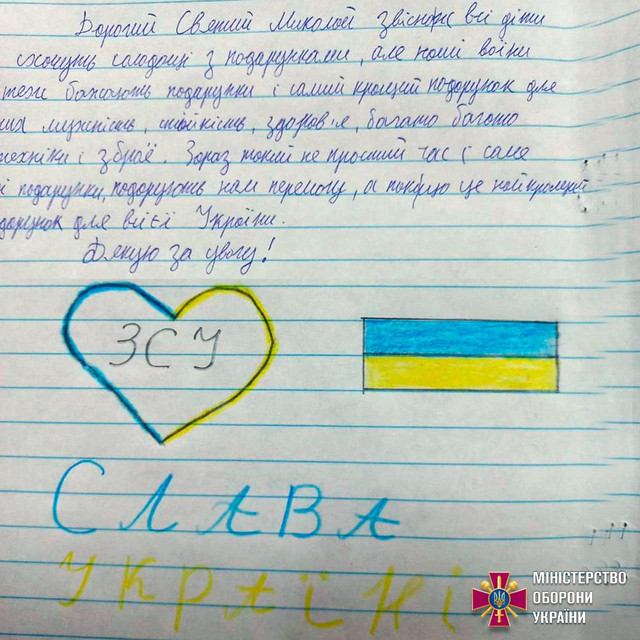 Дорогий Святий Миколай звісно всі діти
хочуть солодощі з подарунками, але наші воїни
теж бажають подарунки і самий кращий подарунок для
них мужність, стійкість, здоров'я, багато багато
техніки і зброї. Зараз такий не простий час і саме
і подарунки, подарують нам перемогу, а це найкращий
дорунок для всієї України.
Дякую за увагу!
ЗСУ
СЛАВА
УКРАЇНІ
МІНІСТЕРСТВО
ОБОРОНИ
УКРАЇНИ